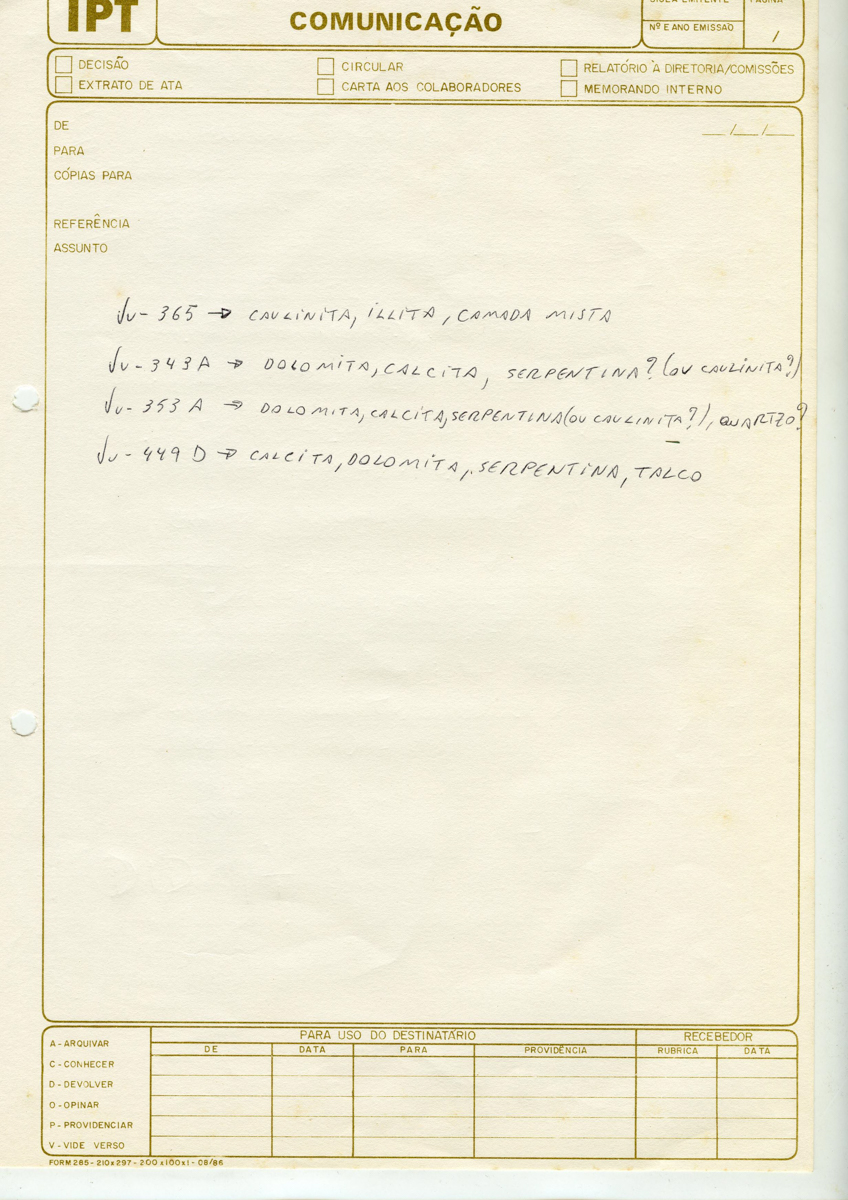 IPT
COMUNICAÇÃO
SIGLA EMITENTE PÁGINA
Nº E ANO EMISSÃO /
DECISÃO CIRCULAR RELATÓRIO À DIRETORIA/COMISSÕES
EXTRATO DE ATA CARTA AOS COLABORADORES MEMORANDO INTERNO
DE / /
PARA
CÓPIAS PARA
REFERÊNCIA
ASSUNTO
Ju-365 → CAULINITA, ILLITA, CAMADA MISTA
Ju-343A → DOLOMITA, CALCITA, SERPENTINA? (OU CAULINITA?)
Ju-353A → DOLOMITA, CALCITA, SERPENTINA (OU CAULINITA?), QUARTZO?
Ju-449D → CALCITA, DOLOMITA, SERPENTINA, TALCO
A - ARQUIVAR
C - CONHECER
D - DEVOLVER
O - OPINAR
P - PROVIDENCIAR
V - VIDE VERSO
PARA USO DO DESTINATÁRIO RECEBEDOR
DE DATA PARA PROVIDÊNCIA RUBRICA DATA
FORM 285 - 210x297 - 200x100x1 - 08/86